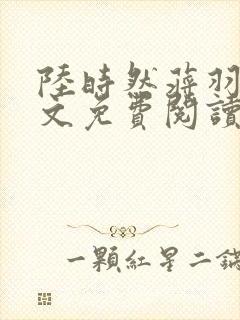 陸時然蔣羽
文免費閱讀
一顆紅星二鍋